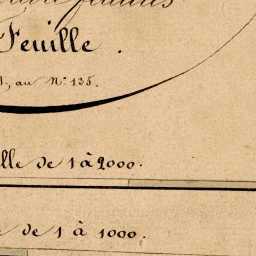 Feuille.
au N° 135.
lle de 1 à 2000.
de 1 à 1000.